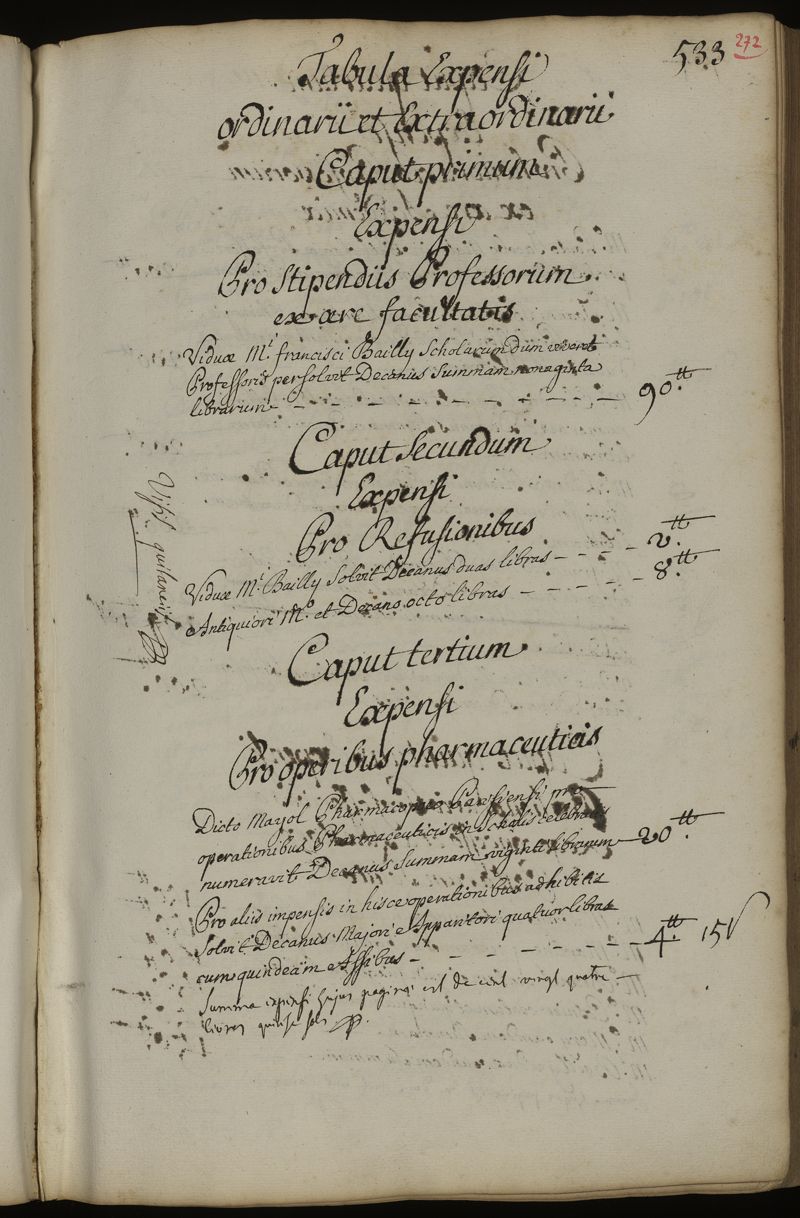 533 272
Tabula Expensi
ordinarii et Extraordinarii
Caput primum
Expensi
Pro Stipendiis Professorum
ex ære facultatis
Viduæ Mi. francisci Bailly Scholarum dum viveret
Professoris persolvit Decanus Summam nonaginta
librarum - - - - - - - - - 90.tt
Caput Secundum
Expensi
Pro Refusionibus
Viduæ Mi. Bailly Solvit Decanus duas libras - - - - 2.tt
Antiquiori Mo. et Decano octo libras - - - - - 8.tt
Caput tertium
Expensi
Pro operibus pharmaceuticis
Dicto Mayol Pharmacopœo Parisiensi pro
operationibus Pharmaceuticis in Scholis celebratis
numeravit Decanus Summam viginti librarum - 20.tt
Pro aliis impensis in hisce operationibus adhibitis
Solvit Decanus Majori Apparitori quatuor libras
cum quindecim Assibus - - - - - - - 4.tt 15s
Summa expensi hujus paginæ est de cent vingt quatre
livres quinze sols